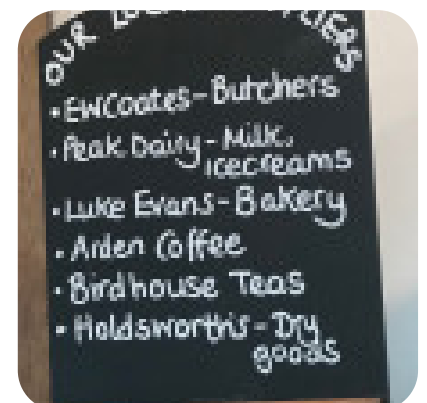 OUR LOCAL SUPPLIERS
• EWCoates - Butchers
• Peak Dairy - Milk,
icecreams
• Luke Evans - Bakery
• Arden Coffee
• Birdhouse Teas
• Holdsworth's - Dry
goods